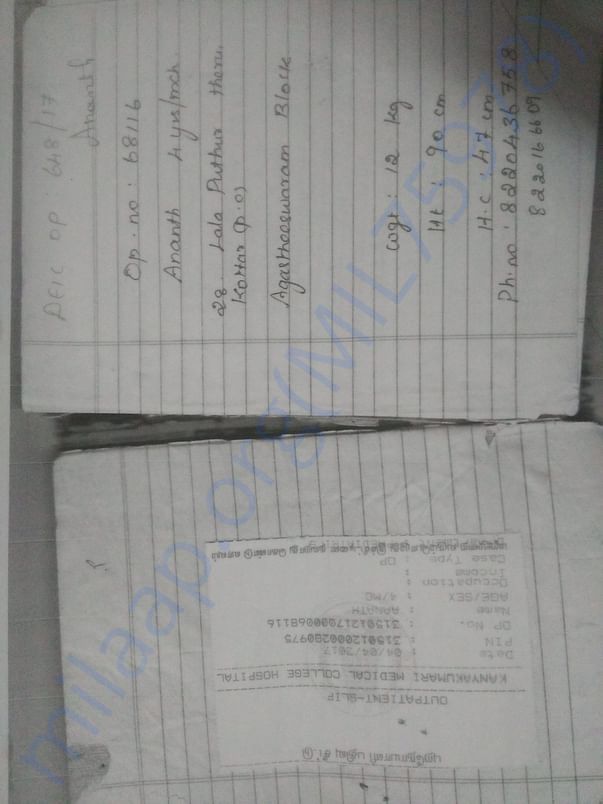 DEIC OP : 648/17
Ananth
Op. no : 68116
Ananth 4 yrs/mch.
28. Lala Puthur theru.
Kottar (p.o)
Agastheeswaram Block
wgt : 12 kg
Ht : 90 cm
H.c : 47 cm
Ph. no : 8220436758
8220166609
புறநோயாளி பதிவு சீட்டு
OUTPATIENT-SLIP
KANYAKUMARI MEDICAL COLLEGE HOSPITAL
Date : 04/04/2017
PIN : 315012000280975
OP No. : 315012170000068116
Name : AANATH
AGE/SEX : 4/MC
Occupation :
Income :
Case Type : OP
milaap.org(MIL75978)